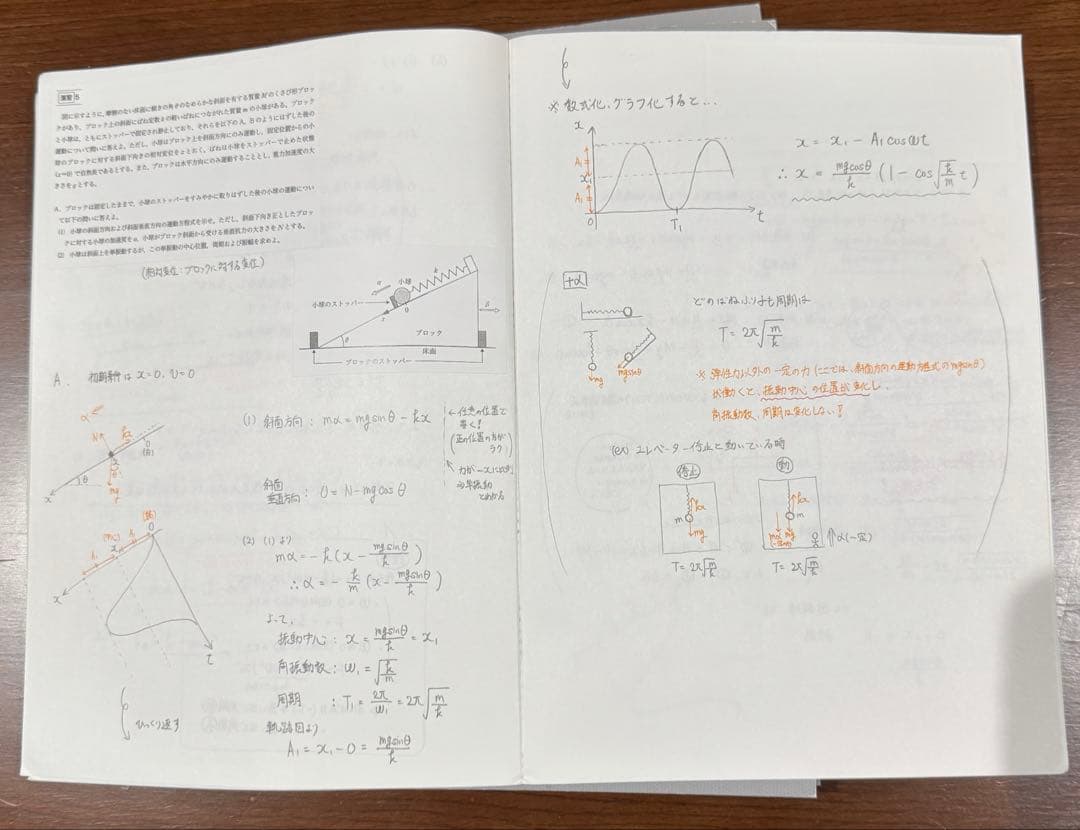 演習 5
図に示すように、摩擦のない床面に傾きの角θのなめらかな斜面を有する質量Mのくさび形ブロッ
クがあり、ブロック上の斜面にばね定数kの軽いばねにつながれた質量mの小球がある。ブロック
と小球は、ともにストッパーで固定され静止しており、それらを以下のA、Bのようにはずした後の
運動について問いに答えよ。ただし、小球はブロック上を斜面方向にのみ運動し、固定位置からの小
球のブロックに対する斜面下向きの相対変位をxとおく。ばねは小球をストッパーで止めた状態
(x=0)で自然長であるとする。また、ブロックは水平方向にのみ運動することとし、重力加速度の大
きさをgとする。
A. ブロックは固定したままで、小球のストッパーをすみやかに取りはずした後の小球の運動につい
て以下の問いに答えよ。
(1) 小球の斜面方向および斜面垂直方向の運動方程式を示せ。ただし、斜面下向き正としたブロッ
クに対する小球の加速度をα、小球がブロック斜面から受ける垂直抗力の大きさをNとする。
(2) 小球は斜面上を単振動するが、この単振動の中心位置、周期および振幅を求めよ。
(相対変位:ブロックに対する変位)
小球
k
α
小球のストッパー
0
x
β
θ
ブロック
床面
ブロックのストッパー
A. 初期条件は x=0, v=0
α
N
kx
0
(自)
x
θ
mg
θ
x
(1) 斜面方向: mα = mgsinθ - kx
←任意の位置で
書く!
(正の位置の方が
ラク)
↖ 力が-xに比例
⇒単振動
とわかる
斜面
垂直方向: 0 = N - mgcosθ
(2) (1)より
mα = -k(x - mgsinθ/k)
∴ α = -k/m (x - mgsinθ/k)
よって、
振動中心: x = mgsinθ/k = x₁
角振動数: ω₁ = √(k/m)
周期 : T₁ = 2π/ω₁ = 2π√(m/k)
軌跡図より
A₁ = x₁ - 0 = mgsinθ/k
0
x
A₁
A₁
t
ひっくり返す
※ 数式化、グラフ化すると…
x
A₁
x₁
A₁
0
T₁
t
x = x₁ - A₁cosωt
∴ x = mgcosθ/k (1 - cos√(k/m) t)
+α
mg
mgsinθ
どのばねふり子も周期は
T = 2π√(m/k)
※ 弾性力以外の一定の力(ここでは、斜面方向の運動方程式のmgsinθ)
が働くと、振動中心の位置が変化し、
角振動数、周期は変化しない!
(ex) エレベーター停止と動いている時
停止
動
kx
m
mg
kx
m
mα
mg
α(一定)
T = 2π√(m/k)
T = 2π√(m/k)